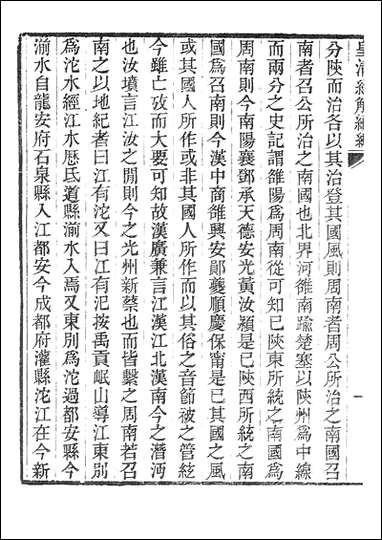 皇清經解續編
分陝而治各以其治登其國風則周南者周公所治之南國召
南者召公所治之南國也北界河雒南踰楚塞以陝州為中線
而兩分之史記謂雒陽為周南從可知已陝東所統之南國為
周南則今南陽襄鄧承天德安光黃汝潁是已陝西所統之南
國為召南則今漢中商雒興安鄖夔順慶保甯是已其國之風
或其國人所作或非其國人所作而以其俗之音節被之管絃
今雖亡攷而大要可知故漢廣兼言江漢江北漢南今之潛沔
也汝墳言江汝之閒則今之光州新蔡也而皆繫之周南若召
南之以地紀者曰江有沱又曰江有汜按禹貢岷山導江東別
為沱水經江水歷氐道縣湔水入焉又東別為沱過都安縣今
湔水自龍安府石泉縣入江都安今成都府灌縣沱江在今新
一